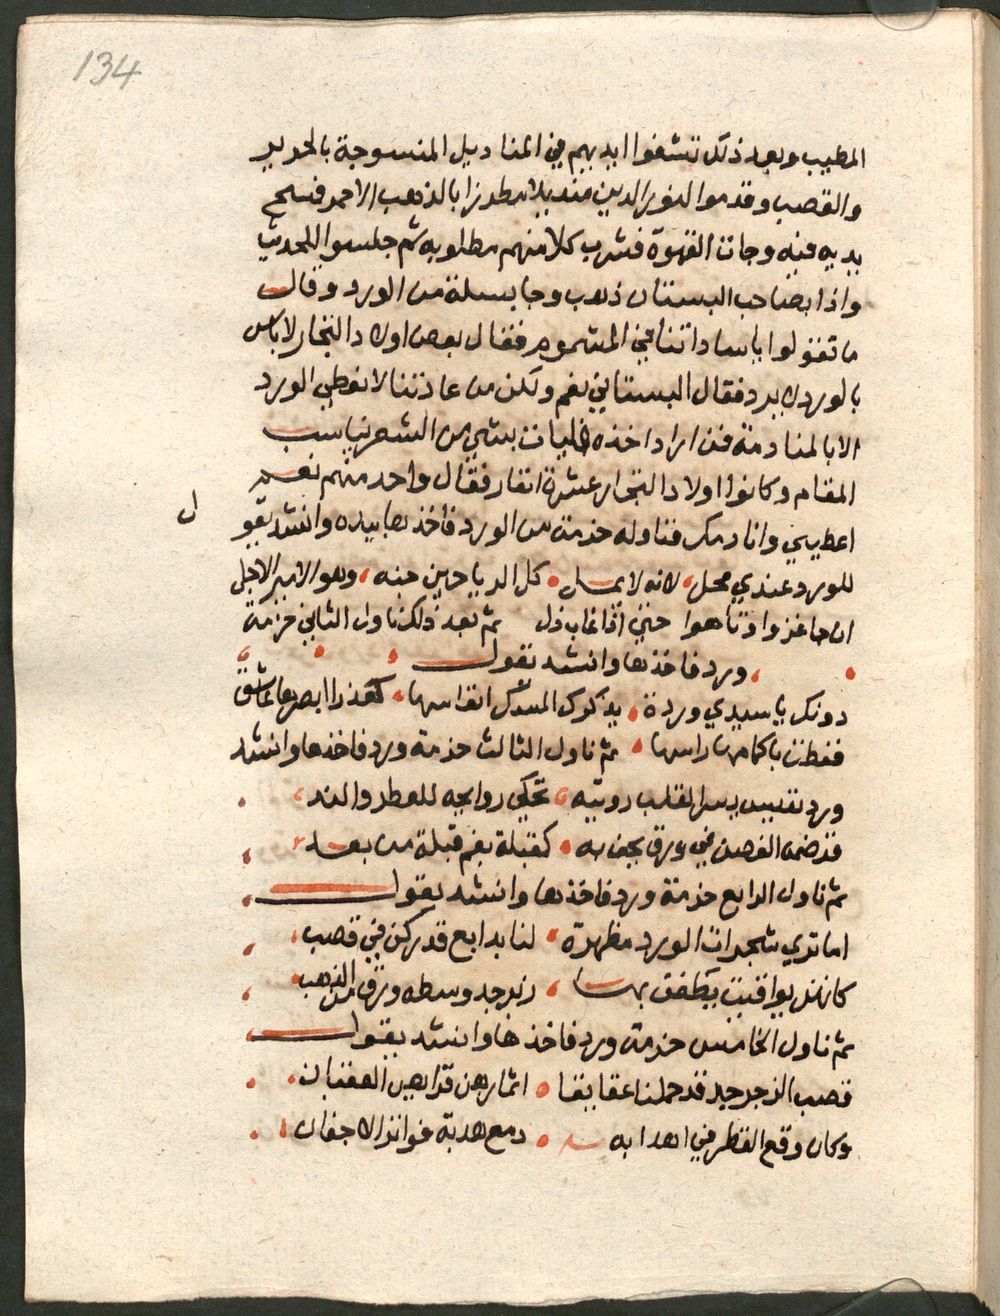 134
المطيب وبعد ذلك نشفوا ايديهم في المناديل المنسوجة بالحرير
والقصب وقدموا لنور الدين منديلا مطرزا بالذهب الاحمر فمسح
يديه فيه وجات القهوة فشرب كلا منهم مطلوبه ثم جلسوا للحديث
واذا بصاحب البستان ذهب وجا بسلة من الورد وقال
ما تقولوا يا ساداتنا في المشموم فقال بعض اولاد التجار لا باس
بالورد لا يرد فقال البستاني نعم ولكن من عادتنا لا نعطي الورد
الا بالمنادمة فمن اراد اخذه فليات بشي من الشعر يناسب
المقام وكانوا اولاد التجار عشرة انفار فقال واحد منهم نعم
اعطيني وانادمك فناوله حزمة من الورد فاخذها بيده وانشد يقو
ل
للورد عندي محل لانه لا يمل كل الرياحين جنه وهو الامير الاجل
ان جا عزوا وتاهوا حتي اذا غاب ذل ثم بعد ذلك ناول الثاني حزمة
ورد فاخذها وانشد يقول
دونك يا سيدي وردة يذكرك المسك انفاسها كعذرا ابصرها عاشق
فغطت باكمامها راسها ثم ناول الثالث حزمة ورد فاخذها وانشد
ورد نفيس يسر القلب رويته تحكي روايحه للعطر والند
قد ضمه الغصن في ورق بجنبه كقبلة بفم قبلة من بعد
ثم ناول الرابع حزمة ورد فاخذها وانشد يقول
اما تري شجرات الورد مظهرة لنا بدايع قد ركبن في قصب
كانهن يواقيت يطفن بها زبرجد وسطه ورق من الذهب
ثم ناول الخامس حزمة ورد فاخذها وانشد يقول
قصب الزجرجد قد حملنا اثمارهن العقبان
وكان وقع القطر في اهدابه دمع هدبة الاجفان